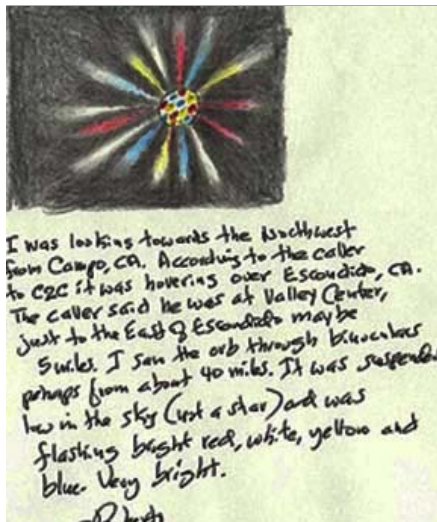 I was looking towards the Northwest
from Campo, CA. According to the caller
to C2C it was hovering over Escondido, CA.
The caller said he was at Valley Center,
just to the East of Escondido maybe
5 miles. I saw the orb through binoculars
perhaps from about 40 miles. It was suspended
low in the sky (not a star) and was
flashing bright red, white, yellow and
blue. Very bright.